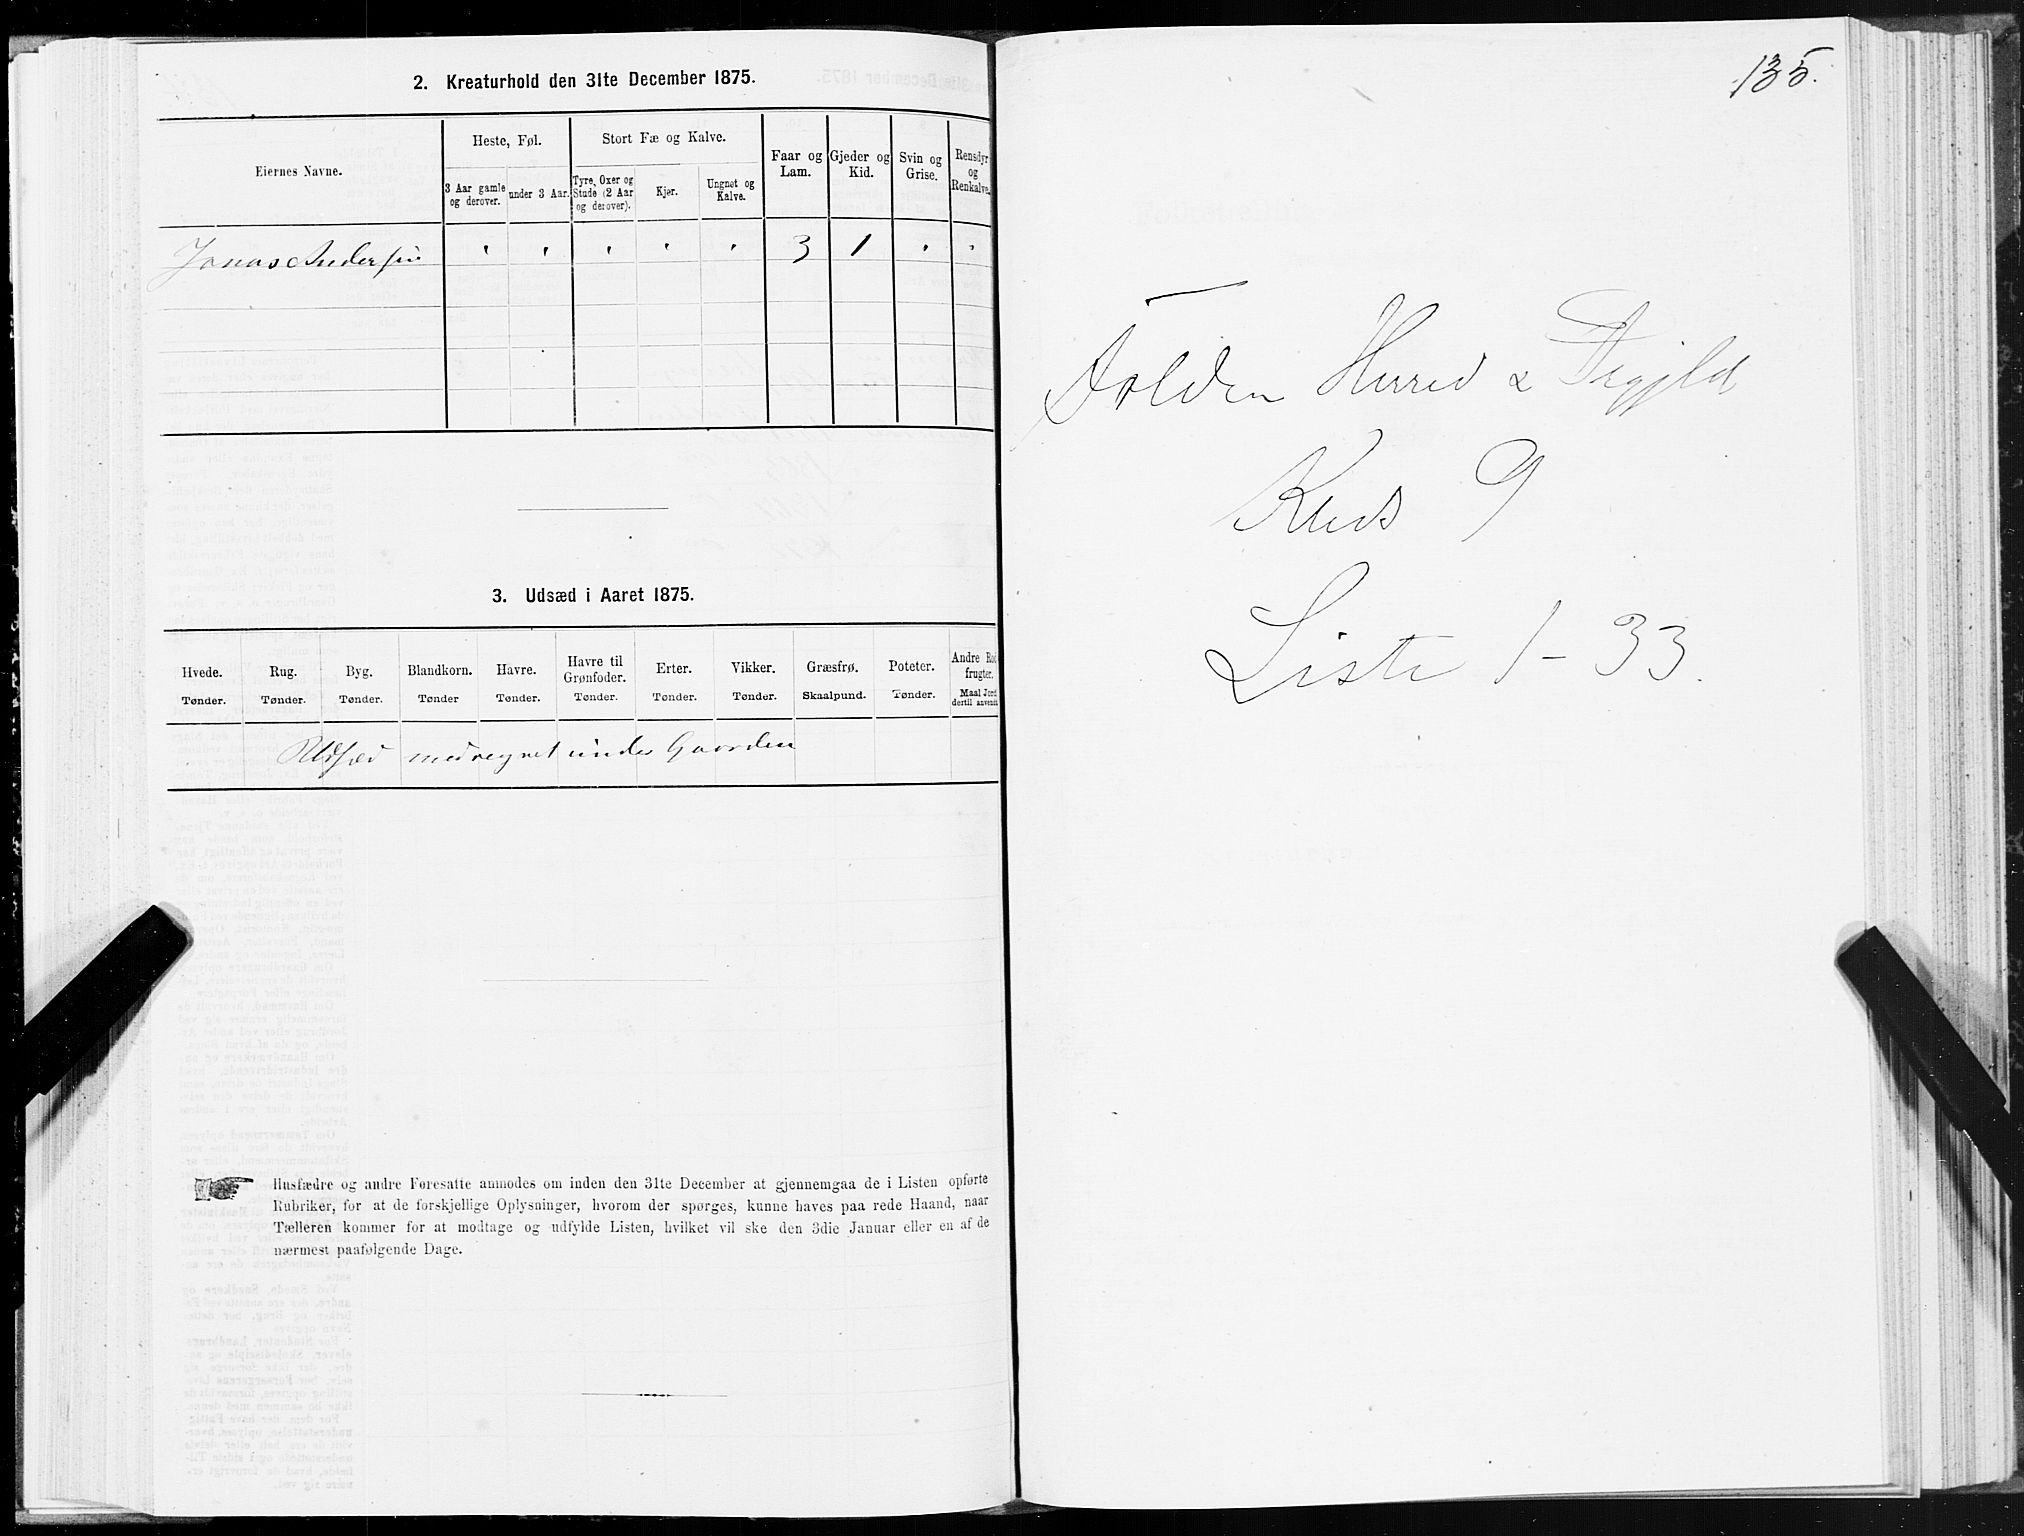 2. Kreaturhold den 31te December 1875.
Eiernes Navne.
Heste, Føl.
Stort Fæ og Kalve.
Faar og Lam.
Gjeder og Kid.
Svin og Grise.
Rensdyr og Renkalve.
3 Aar gamle og derover.
under 3 Aar.
Tyre, Oxer og Stude (2 Aar og derover).
Kjør.
Ungnøt og Kalve.
Jonas Andersen " " " " " 3 1 " "
3. Udsæd i Aaret 1875.
Hvede. Rug. Byg. Blandkorn. Havre. Havre til Grønfoder. Erter. Vikker. Græsfrø. Poteter. Andre Rodfrugter.
Tønder. Tønder. Tønder. Tønder Tønder. Tønder. Tønder. Tønder. Skaalpund. Tønder. Maal Jord dertil anvendt
Udsæd medregnet under Gaarden
Husfædre og andre Foresatte anmodes om inden den 31te December at gjennemgaa de i Listen opførte
Rubriker, for at de forskjellige Oplysninger, hvorom der spørges, kunne haves paa rede Haand, naar
Tælleren kommer for at modtage og udfylde Listen, hvilket vil ske den 3die Januar eller en af de
nærmest paafølgende Dage.
135.
Folden Herred &
Kreds 9
Liste 1-33.